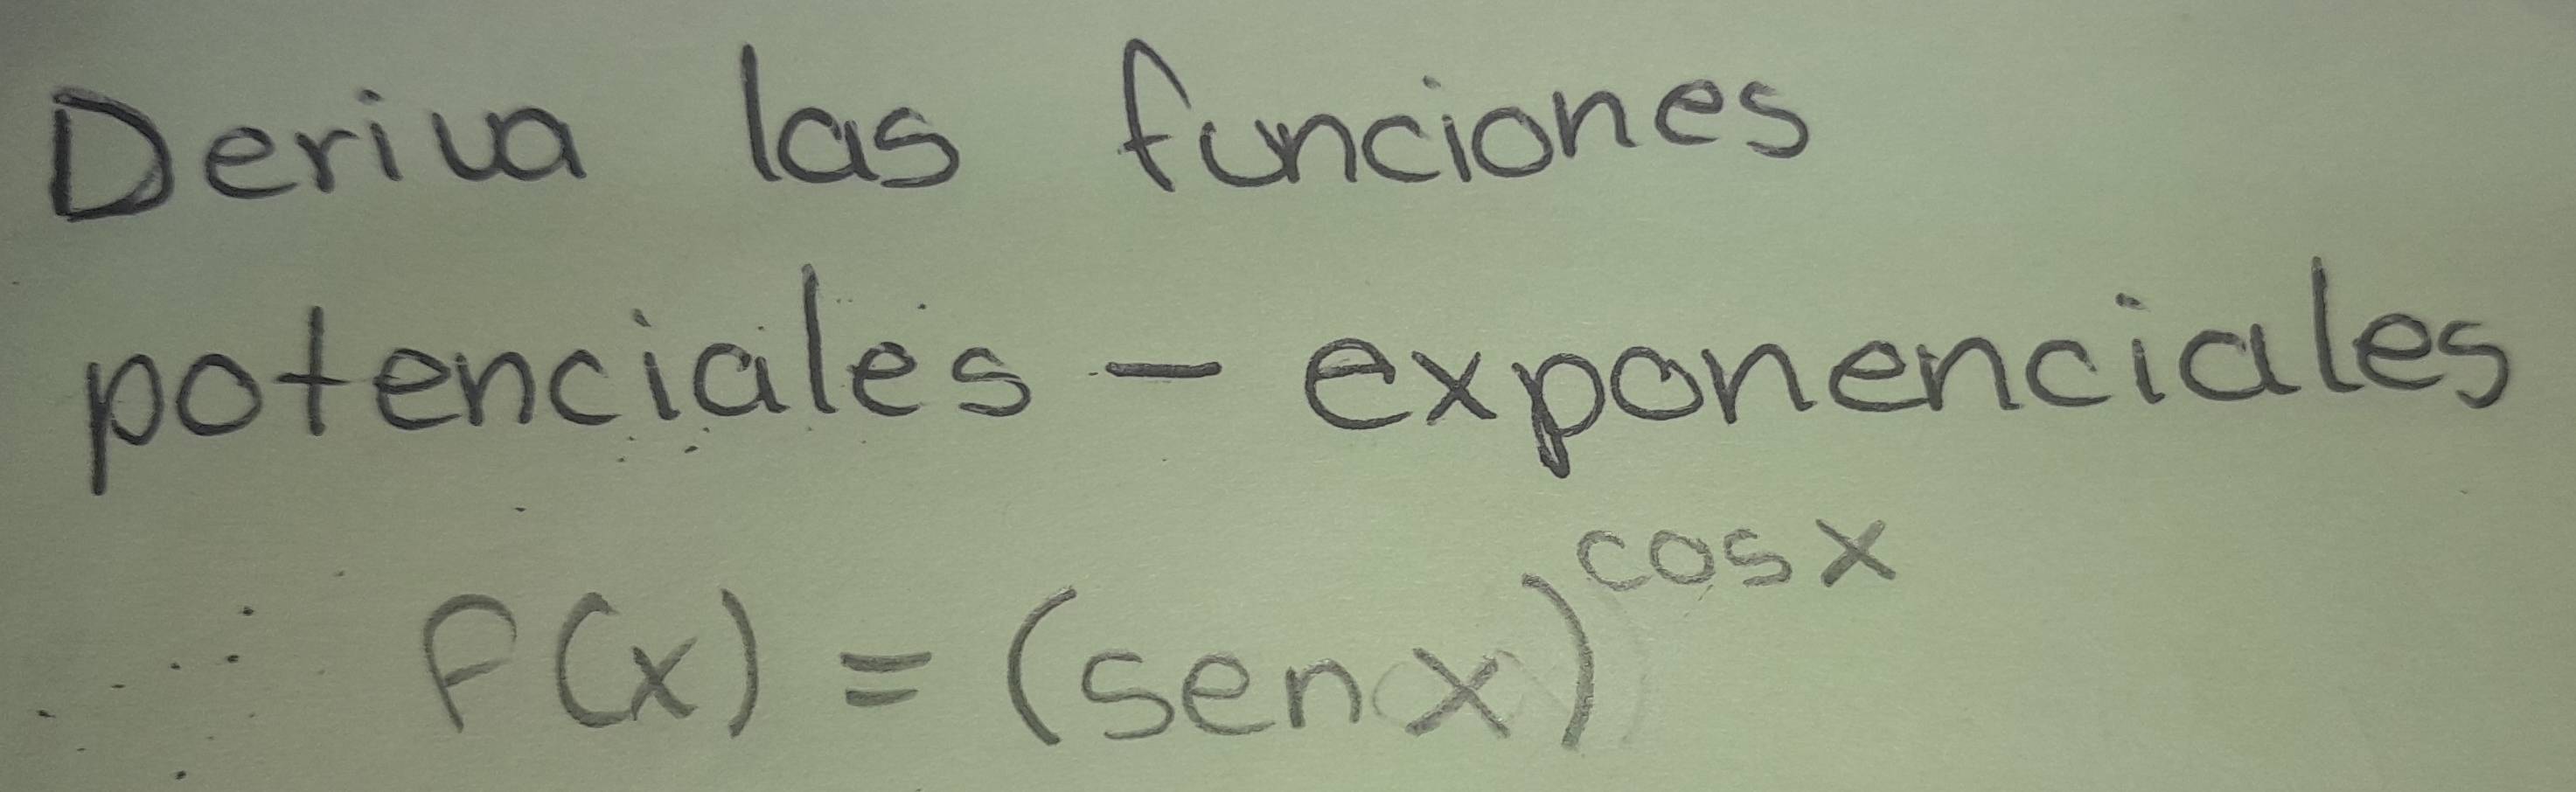 Deriva las funciones
potenciales - exponenciales
f(x) = (sen x)^cos x